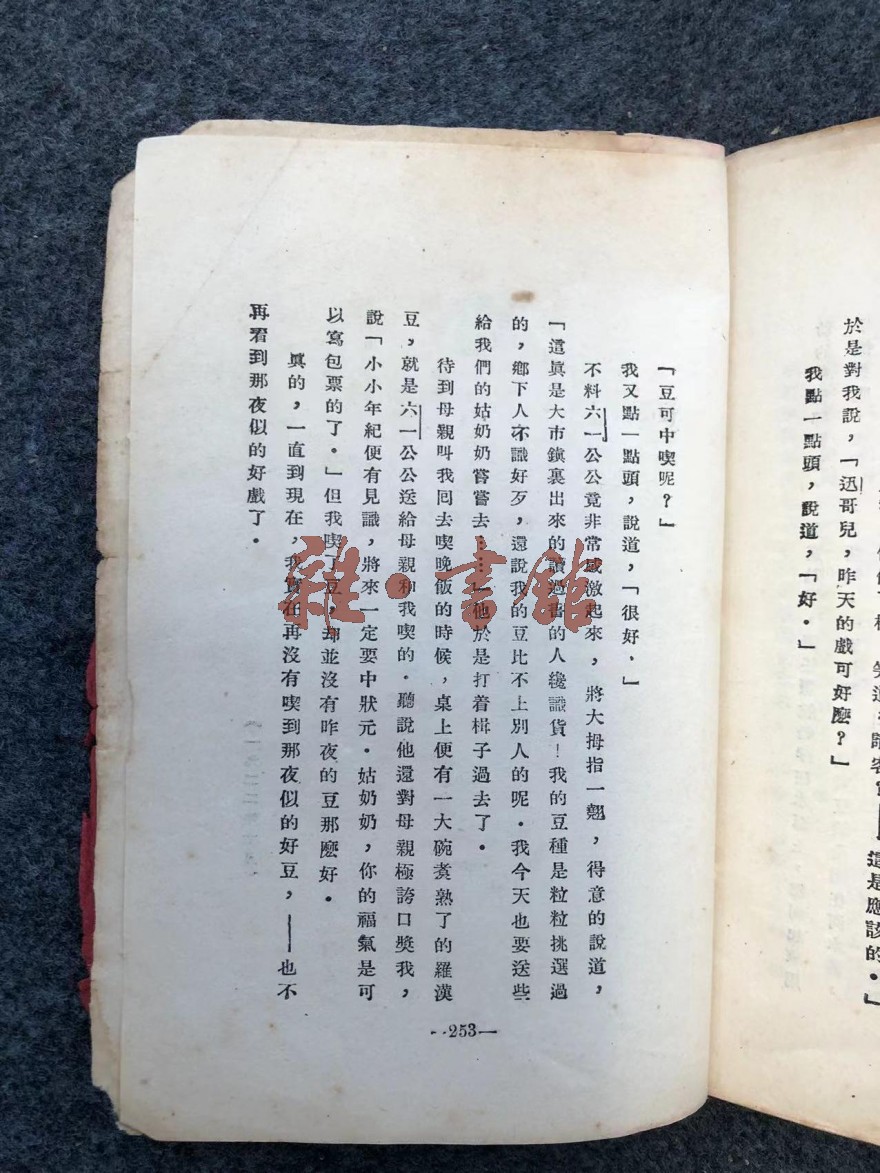 於是對我說，「迅哥兒，昨天的戲可好麽？」
我點一點頭，說道，「好．」
「豆可中喫呢？」
我又點一點頭，說道，「很好．」
不料六一公公竟非常感激起來，將大拇指一翹，得意的說道，
「這眞是大市鎭裏出來的讀過書的人纔識貨！我的豆種是粒粒挑選過
的，鄉下人不識好歹，還說我的豆比不上別人的呢．我今天也要送些
給我們的姑奶奶嘗嘗去……」他於是打着楫子過去了．
待到母親叫我回去喫晚飯的時候，桌上便有一大碗煑熟了的羅漢
豆，就是六一公公送給母親和我喫的．聽說他還對母親極誇口獎我，
說「小小年紀便有見識，將來一定要中狀元．姑奶奶，你的福氣是可
以寫包票的了．」但我喫了豆，却並沒有昨夜的豆那麽好．
眞的，一直到現在，我實在再沒有喫到那夜似的好豆，——也不
再看到那夜似的好戲了．
--253—
雜·書館